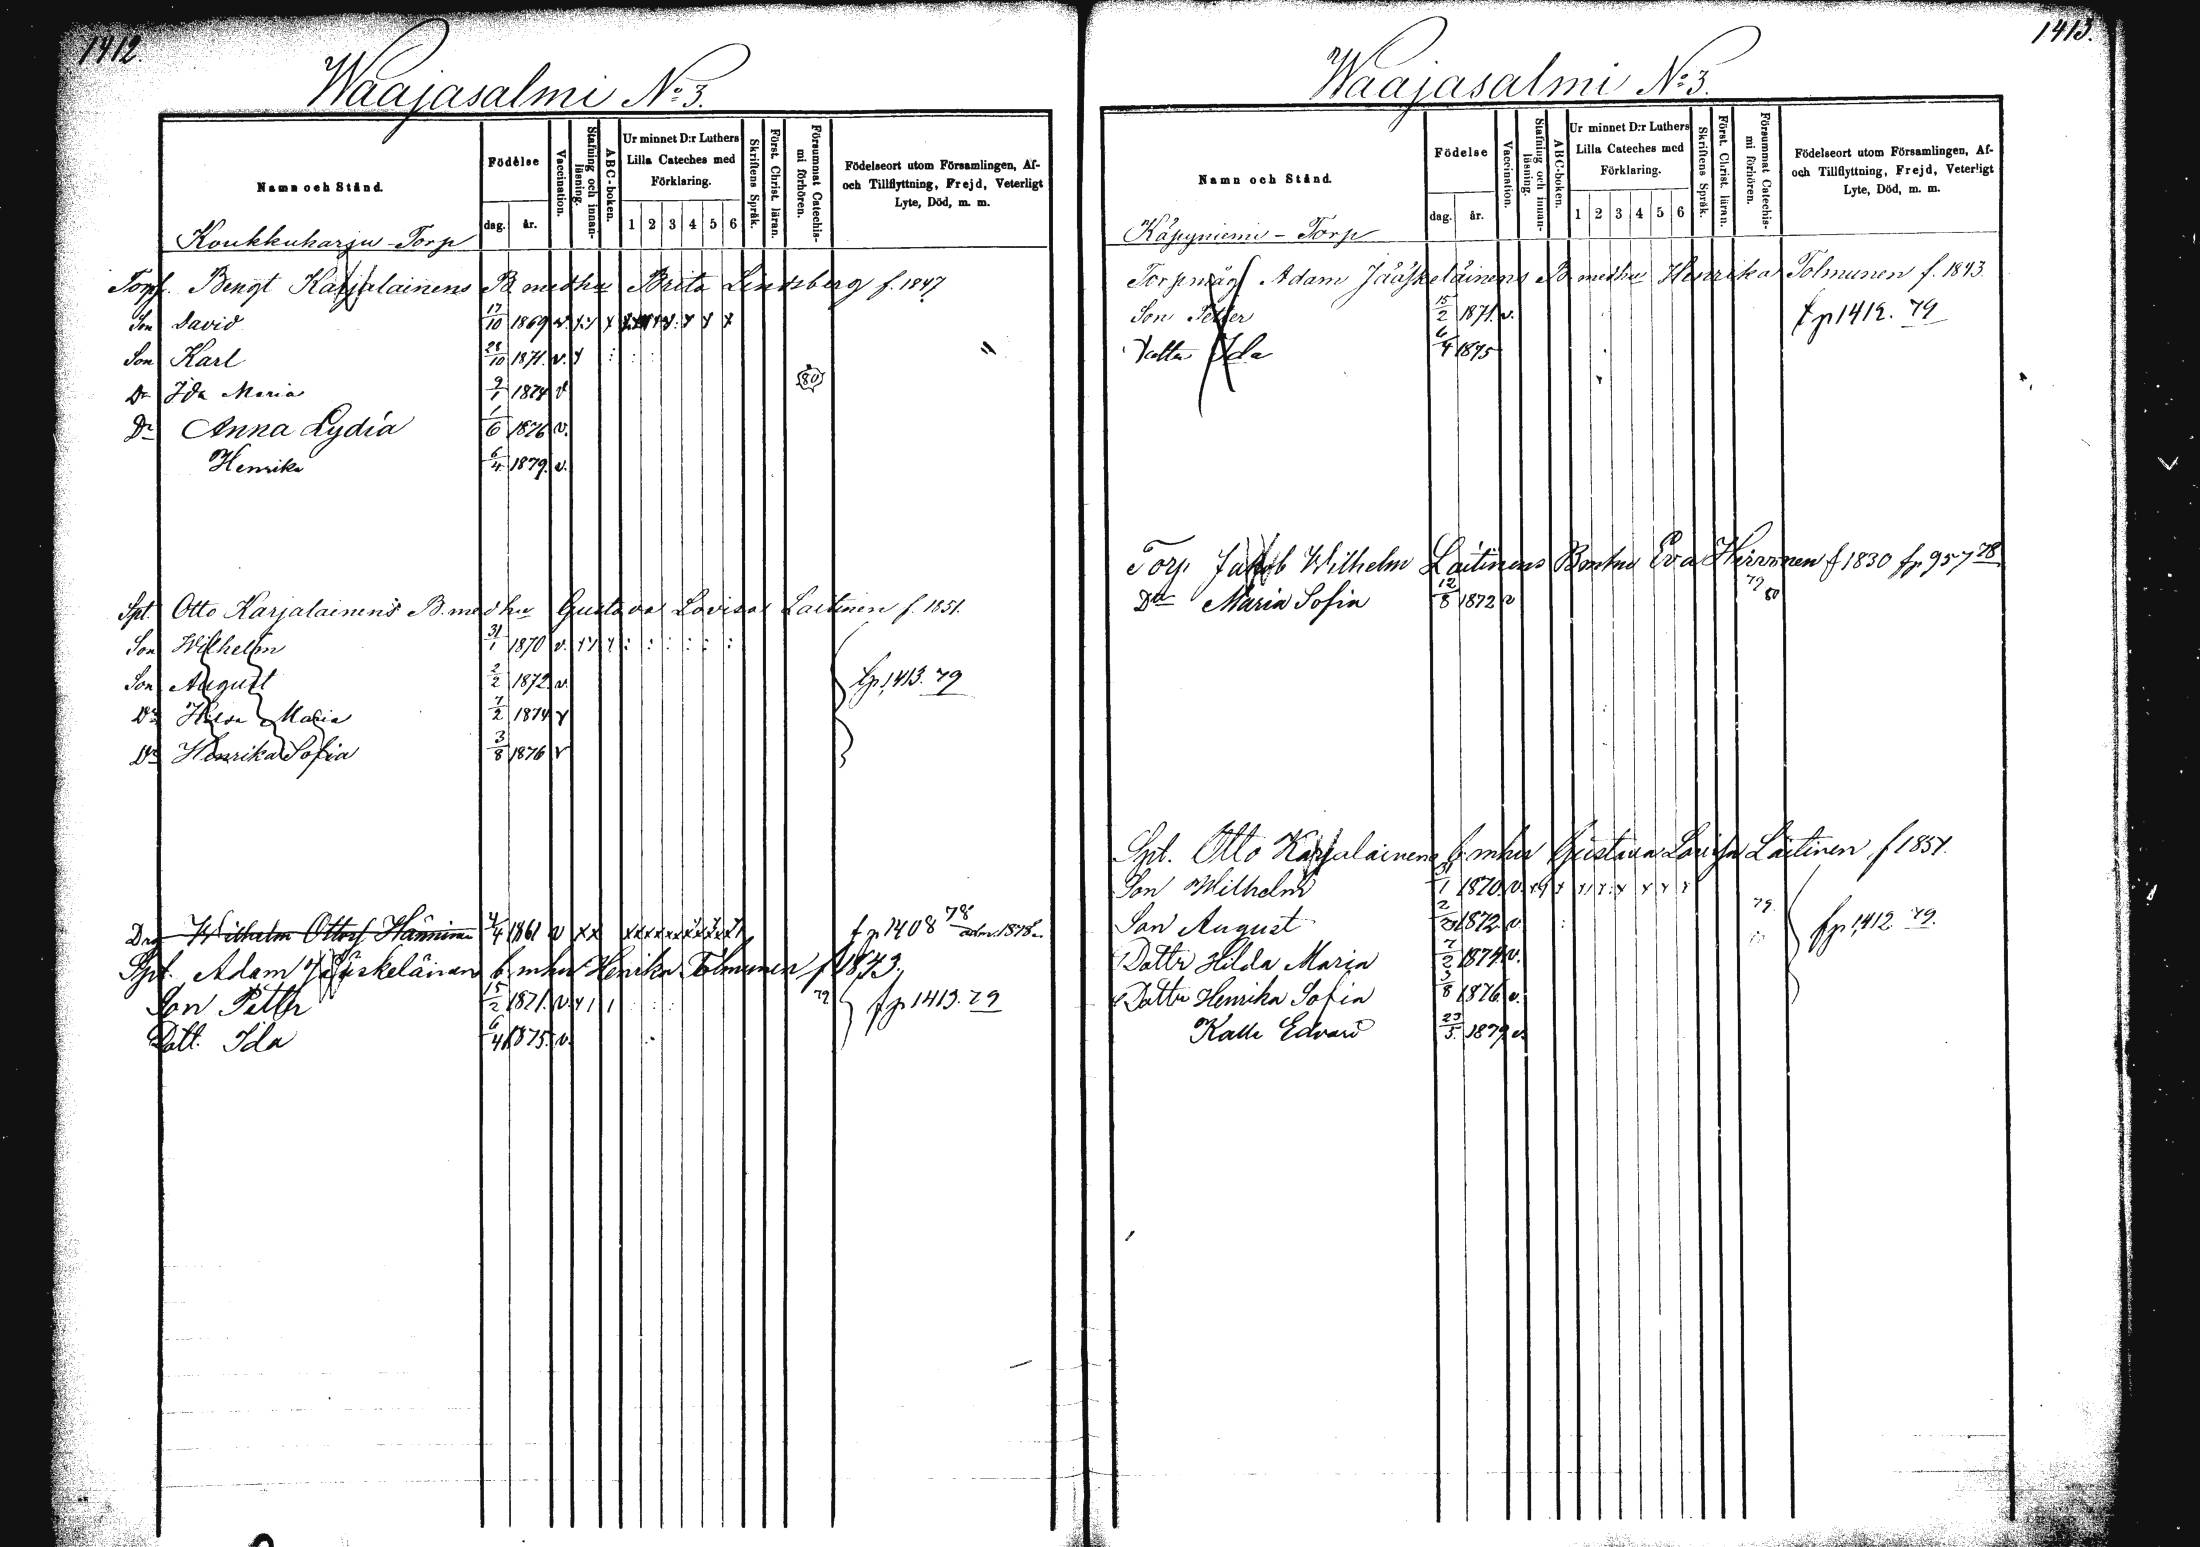 1412.
Waajasalmi No 3.
Namn och Stånd.
Födelse
dag.
år.
Vaccination.
Stafning och innan-läsning.
ABC-boken.
Ur minnet D:r Luthers Lilla Cateches med Förklaring.
1 2 3 4 5 6
Skriftens Språk.
Först. Christ. läran.
Försummat Catechis-mi förhören.
Födelseort utom Församlingen, Af- och Tillflyttning, Frejd, Veterligt Lyte, Död, m. m.
Koukkuharju - Torp
Torpf. Bengt Karjalainens B. medhu Brita Lindsberg f. 1847
Son David 17/10 1869 v
Son Karl 28/10 1871. v.
Dr Ida Maria 9/1 1874 v (80)
Dr Anna Lydia 1/6 1876 v.
Henrika 6/4 1879. v.
Spt. Otto Karjalainens B. medhu Gustava Lovisa Laitinen f. 1851.
Son Wilhelm 31/1 1870 v.
Son August 2/2 1872 v. fp 1413. 79
Dr Hilda Maria 7/2 1874 v
Dr Henrika Sofia 3/8 1876 v
Drg Wilhelm Ottosf Hänninen 4/4 1861 v xx fp 1408 78 adm. 1878
Spt. Adam Jääskeläinen b. mhu Henrika Tolmunen f 1843.
Son Petter 15/2 1871. v. 79 fp 1413. 79
Dott. Ida 6/4 1875. v.
1413.
Waajasalmi No 3.
Namn och Stånd.
Födelse
dag.
år.
Vaccination.
Stafning och innan-läsning.
ABC-boken.
Ur minnet D:r Luthers Lilla Cateches med Förklaring.
1 2 3 4 5 6
Skriftens Språk.
Först. Christ. läran.
Försummat Catechis-mi förhören.
Födelseort utom Församlingen, Af- och Tillflyttning, Frejd, Veterligt Lyte, Död, m. m.
Käpyniemi - Torp
Torpmåg Adam Jääskeläinens B medhu Henrika Tolmunen f. 1843
Son Petter 15/2 1871. v. fp 1412. 79
Dotter Ida 6/4 1875
Torp Jakob Wilhelm Laitinens Bmhu Eva Hirvonen f 1830 fp 957 78
Dtr Maria Sofia 12/8 1872 v 79 80
Spt. Otto Karjalainens b. mhu Gustava Lovisa Laitinen f 1851.
Son Wilhelm 31/1 1870. v.
Son August 2/2 1872 v. 79. fp 1412 79.
Dottr Hilda Maria 7/2 1874 v.
Dottr Henrika Sofia 3/8 1876 v.
Kalle Edvard 23/5. 1879 v.